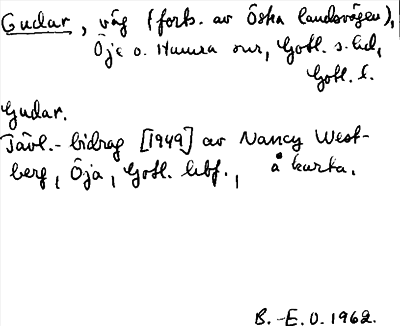 Gudar, väg (forts. av Östra landsvägen),
Öja o. Hamra snr, Gotl. s. hd,
Gotl. l.
Gudar.
Tävl.- bidrag [1949] av Nancy West-
berg, Öja, Gotl. hbf., å karta.
B.-E. O. 1962.